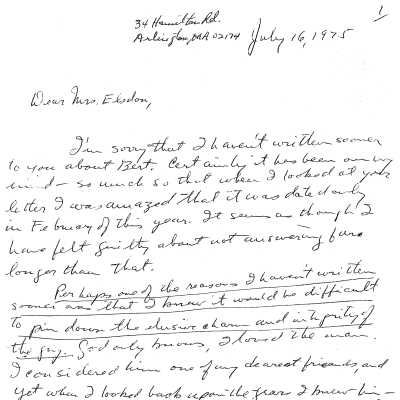 1
34 Hamilton Rd.
Arlington, MA 02174
July 16, 1975
Dear Mrs. Elsdon,
I'm sorry that I haven't written sooner
to you about Bert. Certainly it has been on my
mind — so much so that when I looked at your
letter I was amazed that it was dated only
in February of this year. It seems as though I
have felt guilty about not answering for
longer than that.
Perhaps one of the reasons I haven't written
sooner was that I knew it would be difficult
to pin down the elusive charm and integrity of
the guy. God only knows, I loved the man.
I considered him one of my dearest friends, and
yet when I looked back upon the years I knew him —